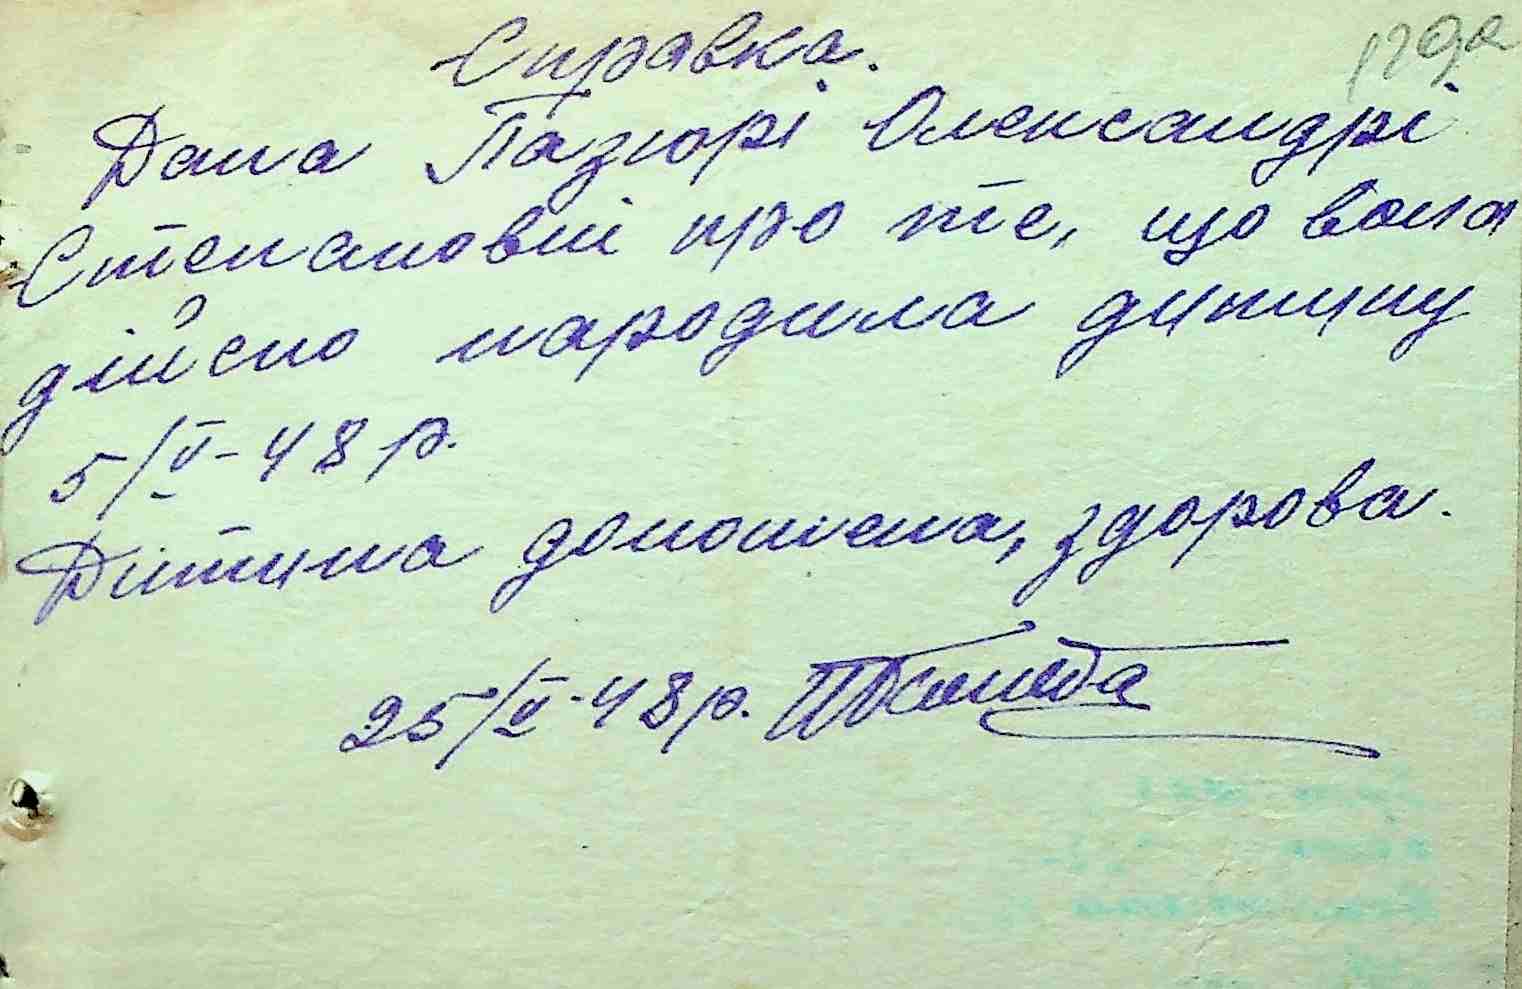 129а
Справка.
Дана Пазюрі Олександрі
Степановні про те, що вона
дійсно народила дитину
5/V-48 р.
Дитина доношена, здорова.
25/V-48 р.